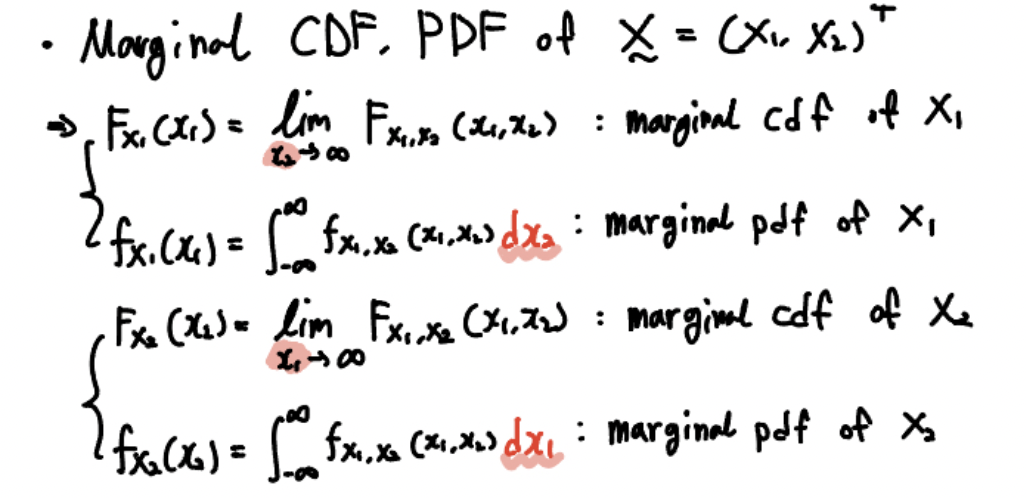 · Marginal CDF, PDF of X̰ = (X₁, X₂)ᵀ
⇒ F_{X₁}(x₁) = lim_{x₂→∞} F_{X₁,X₂}(x₁,x₂) : marginal cdf of X₁
f_{X₁}(x₁) = ∫_{-∞}^{∞} f_{X₁,X₂}(x₁,x₂) dx₂ : marginal pdf of X₁
F_{X₂}(x₂) = lim_{x₁→∞} F_{X₁,X₂}(x₁,x₂) : marginal cdf of X₂
f_{X₂}(x₂) = ∫_{-∞}^{∞} f_{X₁,X₂}(x₁,x₂) dx₁ : marginal pdf of X₂